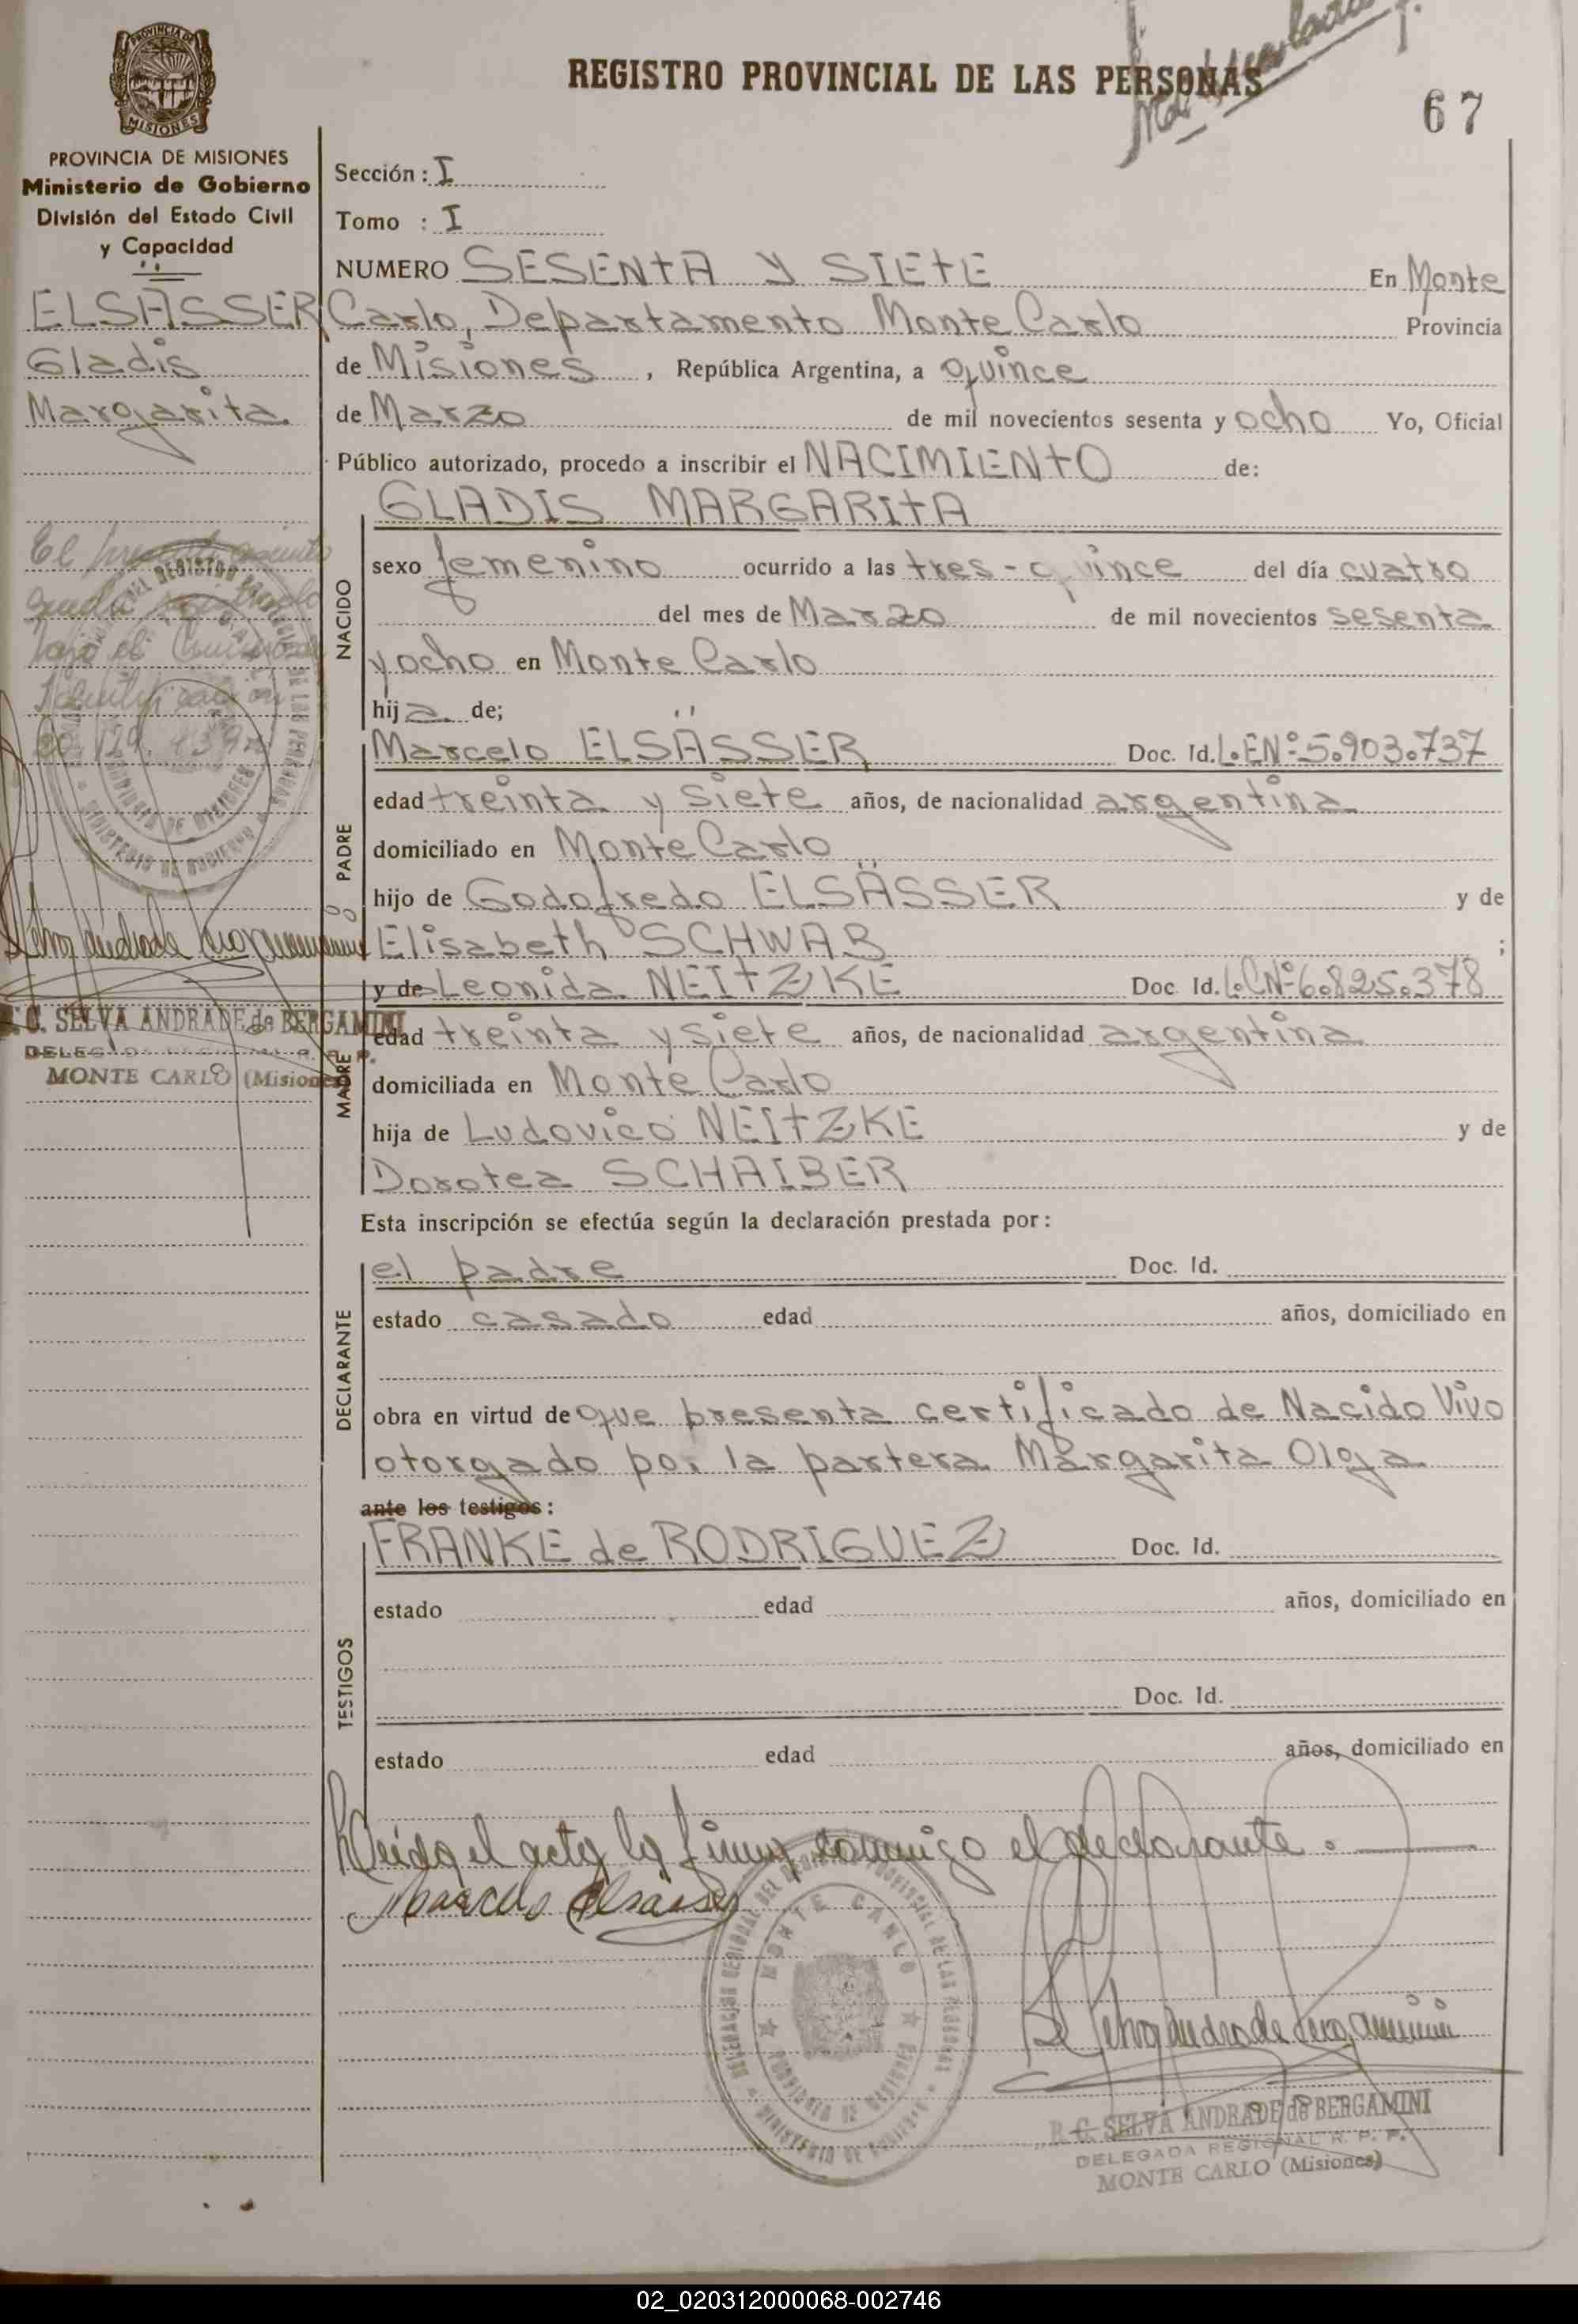 REGISTRO PROVINCIAL DE LAS PERSONAS
67
PROVINCIA DE MISIONES
PROVINCIA DE MISIONES
Ministerio de Gobierno
División del Estado Civil
y Capacidad
ELSÄSSER
Gladis
Margarita
El presente asiento
queda
bajo el
R.C. SELVA ANDRADE de BERGAMINI
MONTE CARLO (Misiones)
Sección: I
Tomo : I
NUMERO SESENTA Y SIETE En Monte
Carlo, Departamento Monte Carlo Provincia
de Misiones, República Argentina, a quince
de Marzo de mil novecientos sesenta y ocho Yo, Oficial
Público autorizado, procedo a inscribir el NACIMIENTO de:
NACIDO
GLADIS MARGARITA
sexo femenino ocurrido a las tres-quince del día cuatro
del mes de Marzo de mil novecientos sesenta
y ocho en Monte Carlo
hija de;
PADRE
Marcelo ELSÄSSER Doc. Id. L.E.Nº 5.903.737
edad treinta y siete años, de nacionalidad argentina
domiciliado en Monte Carlo
hijo de Godofredo ELSÄSSER y de
Elisabeth SCHWAB ;
MADRE
y de Leonida NEITZKE Doc Id. L.C.Nº 6.825.378
edad treinta y siete años, de nacionalidad argentina
domiciliada en Monte Carlo
hija de Ludovico NEITZKE y de
Dorotea SCHAIBER
Esta inscripción se efectúa según la declaración prestada por:
DECLARANTE
el padre Doc. Id.
estado casado edad años, domiciliado en
obra en virtud de que presenta certificado de Nacido Vivo
otorgado por la partera Margarita Olga
ante los testigos:
TESTIGOS
FRANKE de RODRIGUEZ Doc. Id.
estado edad años, domiciliado en
Doc. Id.
estado edad años, domiciliado en
Leida el acta la firma conmigo el declarante.
Marcelo Elsässer
DELEGACION REGIONAL DEL REGISTRO PROVINCIAL DE LAS PERSONAS
MONTE CARLO
PROVINCIA DE MISIONES
MINISTERIO DE GOBIERNO
R. C. SELVA ANDRADE de BERGAMINI
DELEGADA REGIONAL R. P. P.
MONTE CARLO (Misiones)
02_020312000068-002746